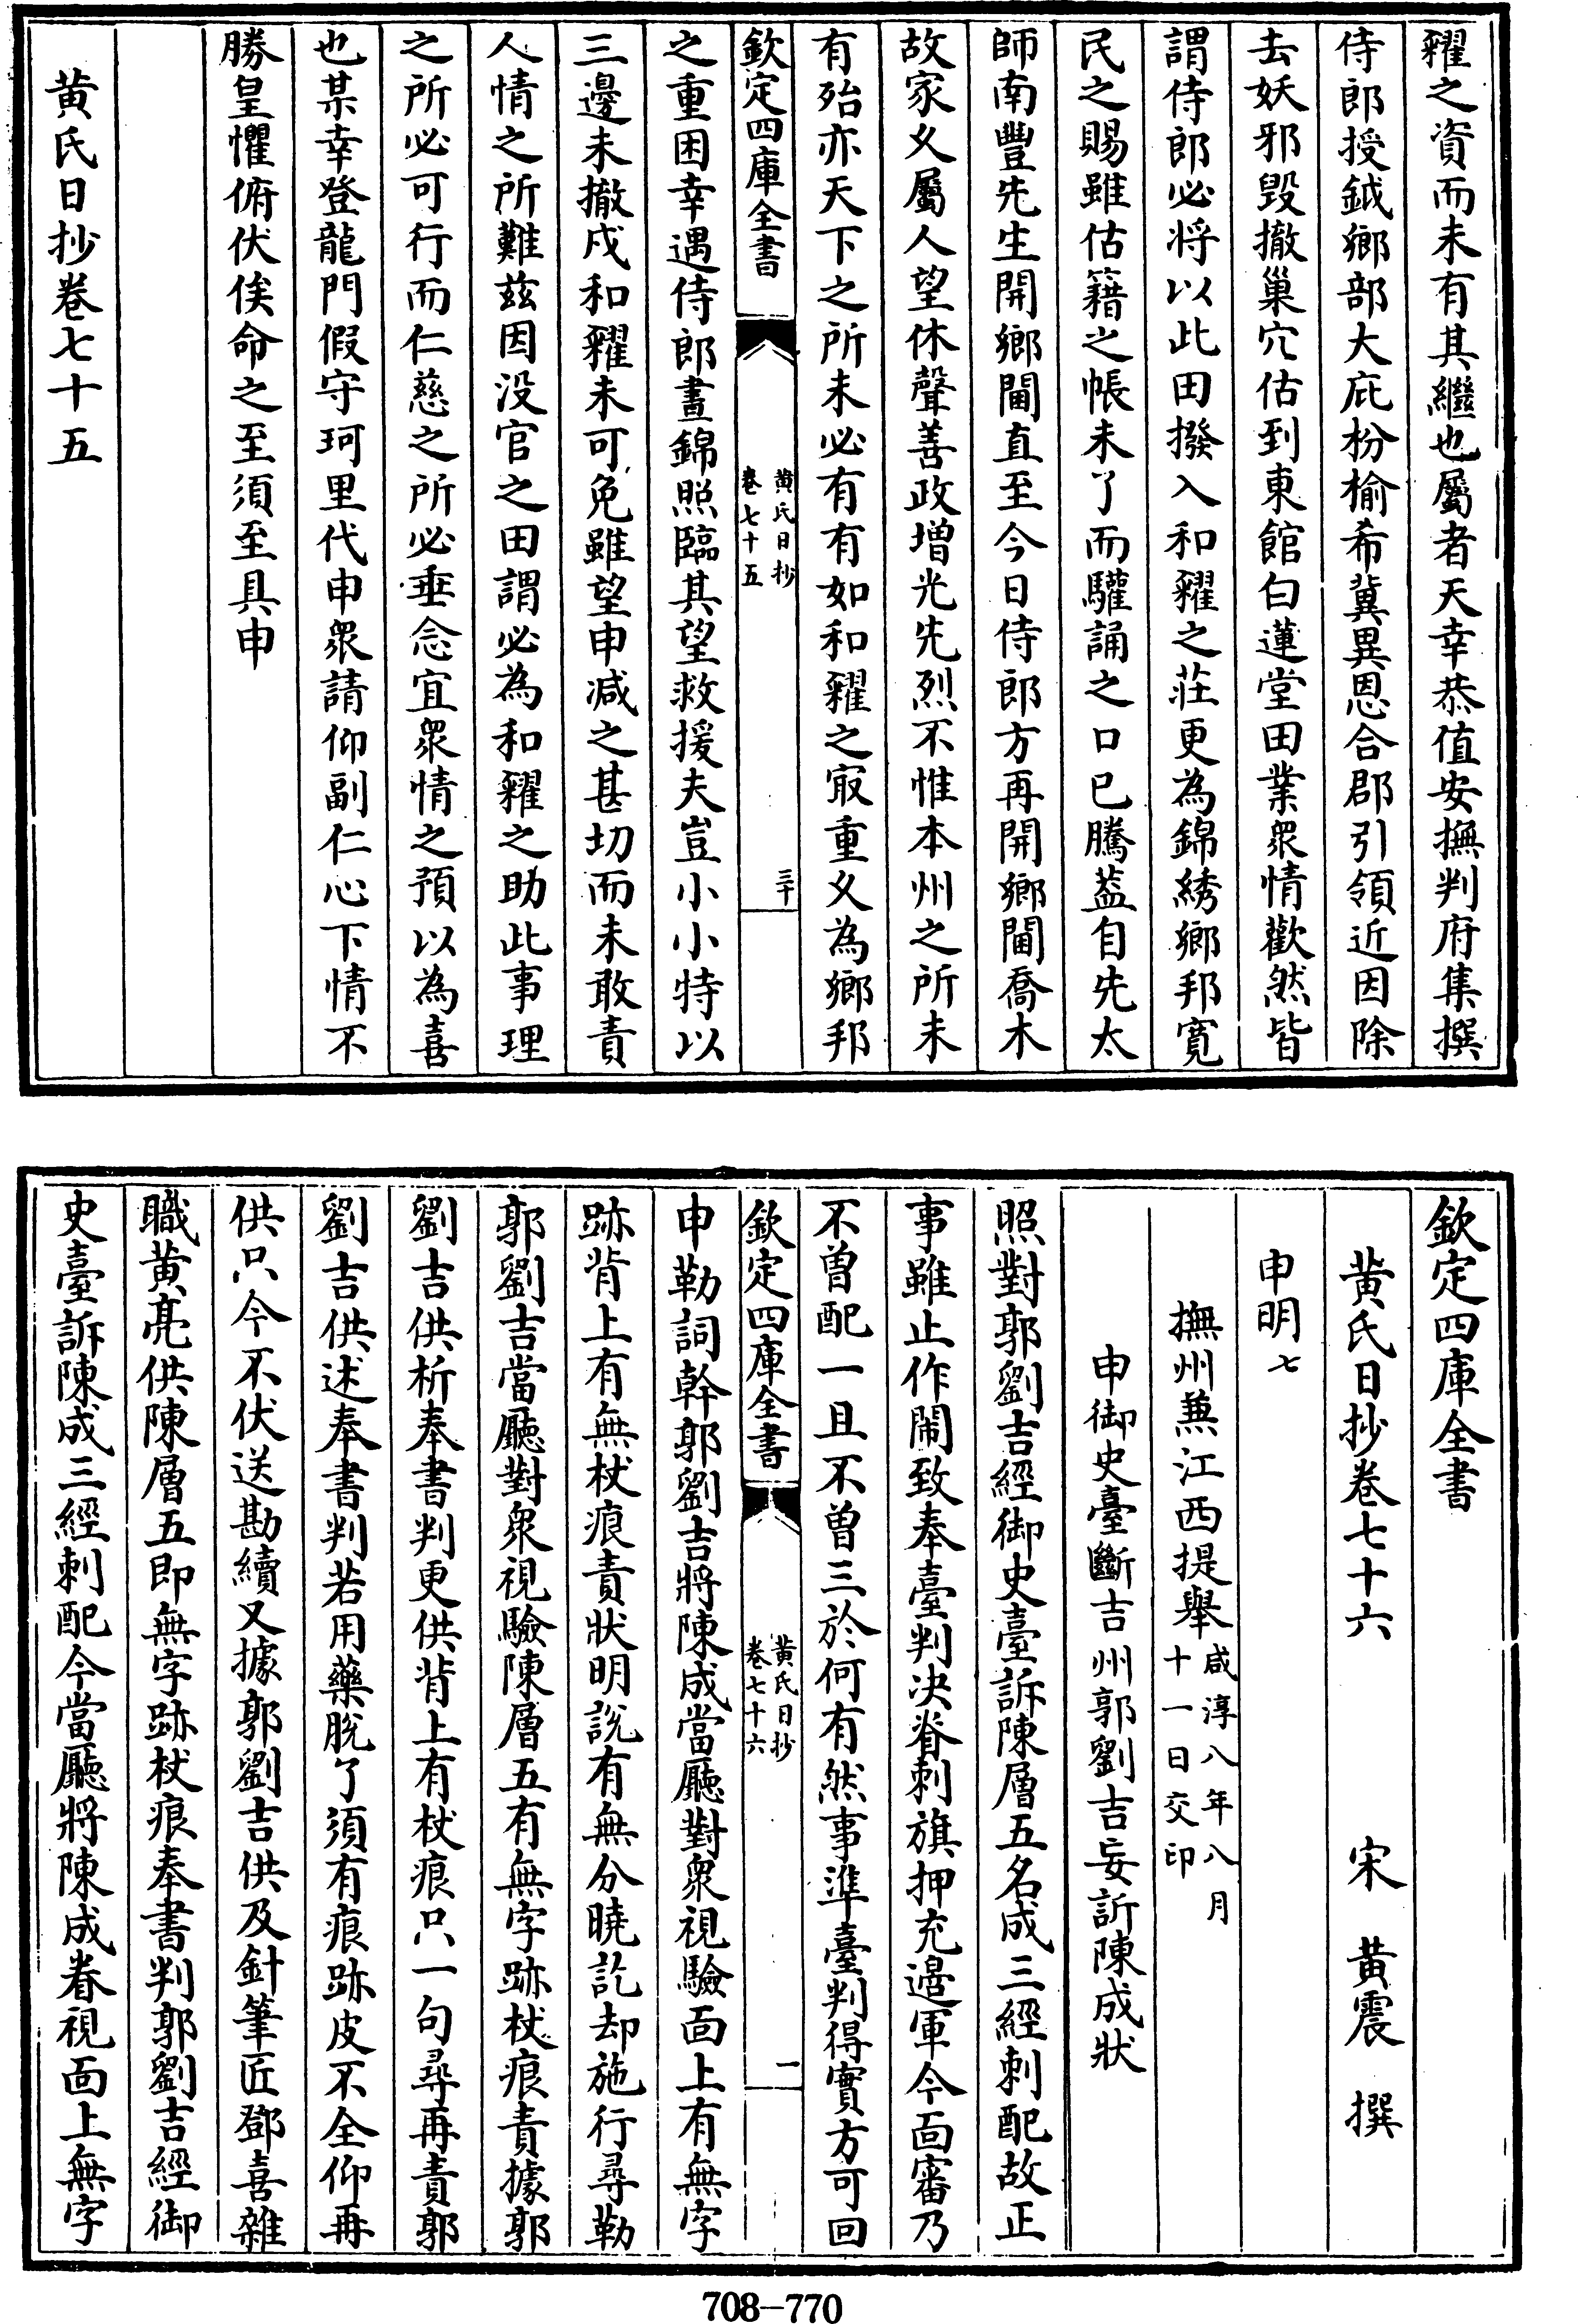 糴之資而未有其繼也屬者天幸恭值安撫判府集撰
侍郎授鉞鄉部大庇枌榆希冀異恩合郡引領近因除
去妖邪毀撤巢穴估到東館白蓮堂田業衆情歡然皆
謂侍郎必將以此田撥入和糴之莊更為錦綉鄉邦寛
民之賜雖估籍之帳未了而驩誦之口已騰葢自先太
師南豐先生開鄉閫直至今日侍郎方再開鄉閫喬木
故家乂屬人望休聲善政增光先烈不惟本州之所未
有殆亦天下之所未必有有如和糴之㝡重乂為鄉邦
欽定四庫全書
黄氏日抄
卷七十五
三十
之重困幸遇侍郎晝錦照臨其望救援夫豈小小特以
三邊未撤戍和糴未可免雖望申减之甚切而未敢責
人情之所難兹因没官之田謂必為和糴之助此事理
之所必可行而仁慈之所必垂念宜衆情之預以為喜
也某幸登龍門假守珂里代申衆請仰副仁心下情不
勝皇懼俯伏俟命之至須至具申
黄氏日抄卷七十五
欽定四庫全書
黄氏日抄卷七十六 宋 黄震 撰
申明七
撫州兼江西提舉咸淳八年八月
十一日交印
申御史臺斷吉州郭劉吉妄訴陳成狀
照對郭劉吉經御史臺訴陳層五名成三經刺配故正
事雖止作鬧致奉臺判決脊刺旗押充邉軍今面審乃
不曽配一且不曽三於何有然事準臺判得實方可回
欽定四庫全書
黄氏日抄
卷七十六
一
申勒詞幹郭劉吉將陳成當廳對衆視驗面上有無字
跡背上有無杖痕責狀明説有無分曉訖却施行尋勒
郭劉吉當廳對衆視驗陳層五有無字跡杖痕責據郭
劉吉供析奉書判更供背上有杖痕只一句尋再責郭
劉吉供述奉書判若用藥脫了須有痕跡皮不全仰再
供只今不伏送勘續又據郭劉吉供及針筆匠鄧喜雜
職黄亮供陳層五即無字跡杖痕奉書判郭劉吉經御
史臺訴陳成三經刺配今當廳將陳成眷視面上無字
708-770